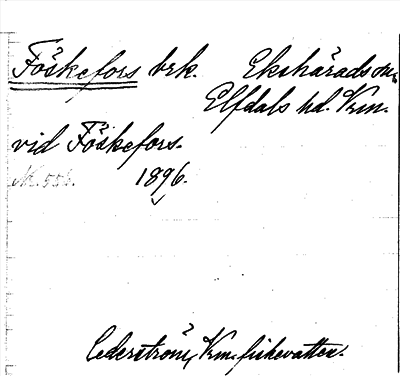 Föskefors brk. Ekshärads sn.
Elfdals hd. Vrm.
vid Föskefors.
N. 556. 1896.
Cederström, Vrm. fiskevatten.